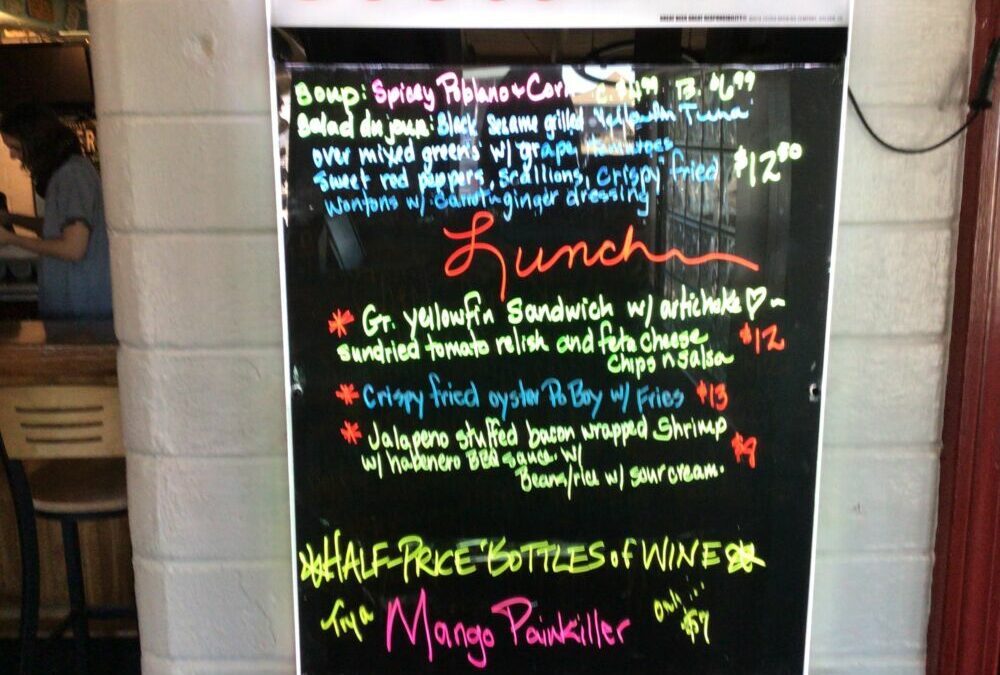 GREAT BEER GREAT RESPONSIBILITY
Soup: Spicey Poblano + Corn C. $4.99 B. $6.99
Salad du jour: Black Sesame grilled Yellowfin Tuna
over mixed greens w/ grape tomatoes
sweet red peppers, scallions, crispy fried $12.50
wontons w/ carrot-ginger dressing
Lunch
* Gr. yellowfin Sandwich w/ artichoke ♡ ~
sundried tomato relish and feta cheese $12
Chips n salsa
* Crispy fried oyster Po Boy w/ Fries $13
* Jalapeno stuffed bacon wrapped Shrimp
w/ habenero BBQ sauce w/ $9
Beans/rice w/ sour cream.
*HALF-PRICE BOTTLES of WINE*
Try a Mango Painkiller only... $7